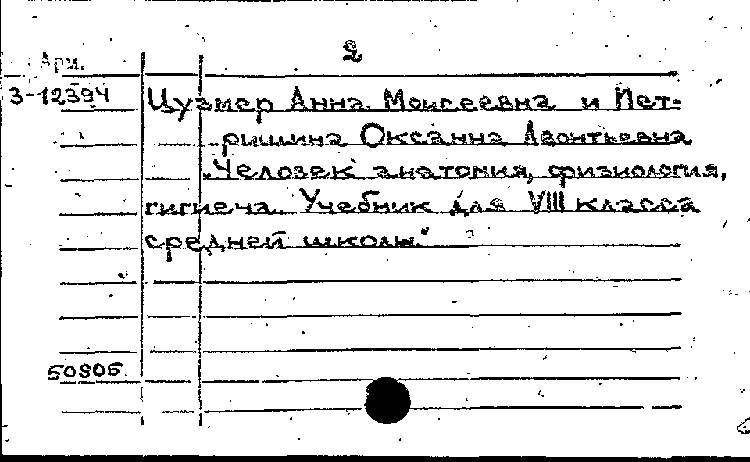 2
Арм.
3-12394
Цузмер Анна Моисеевна и Пет-
ришина Оксанна Леонтьевна
„Человек анатомия, физиология,
гигиена. Учебник для VIII класса
средней школы."
50805